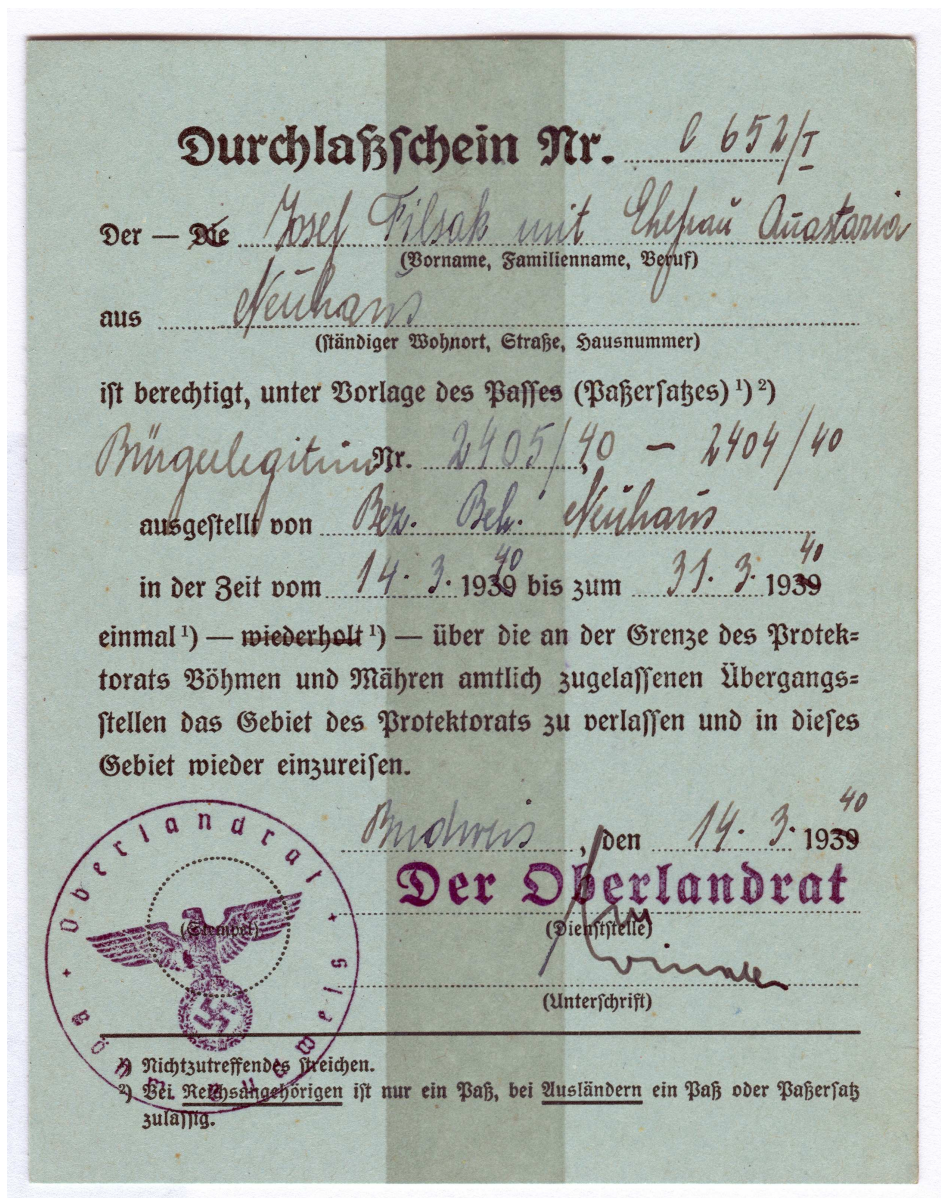 Durchlaßschein Nr. C 652/I
Der — Die Josef Filsak mit Ehefrau Anastasia
(Vorname, Familienname, Beruf)
aus Neuhaus
(ständiger Wohnort, Straße, Hausnummer)
ist berechtigt, unter Vorlage des Passes (Paßersatzes) ¹) ²)
Bürgerlegitim Nr. 2405/40 — 2404/40
ausgestellt von Bez. Beh. Neuhaus
in der Zeit vom 14. 3. 1939 40 bis zum 31. 3. 1939 40
einmal ¹) — wiederholt ¹) — über die an der Grenze des Protek=
torats Böhmen und Mähren amtlich zugelassenen Übergangs=
stellen das Gebiet des Protektorats zu verlassen und in dieses
Gebiet wieder einzureisen.
Budweis, den 14. 3. 1939 40
Oberlandrat
Der Oberlandrat
(Stempel)
(Dienststelle)
(Unterschrift)
¹) Nichtzutreffendes streichen.
²) Bei Reichsangehörigen ist nur ein Paß, bei Ausländern ein Paß oder Paßersatz
zulässig.